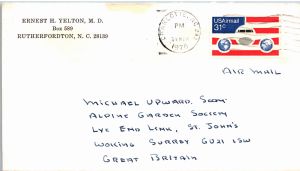 ERNEST H. YELTON, M. D.
Box 589
RUTHERFORDTON, N. C. 28139
PM
1976
USAirmail
31c
AIR MAIL
MICHAEL UPWARD, SECY.
ALPINE GARDEN SOCIETY
LYE END LINK, ST. JOHN'S
WOKING SURREY GU21 1SW
GREAT BRITAIN